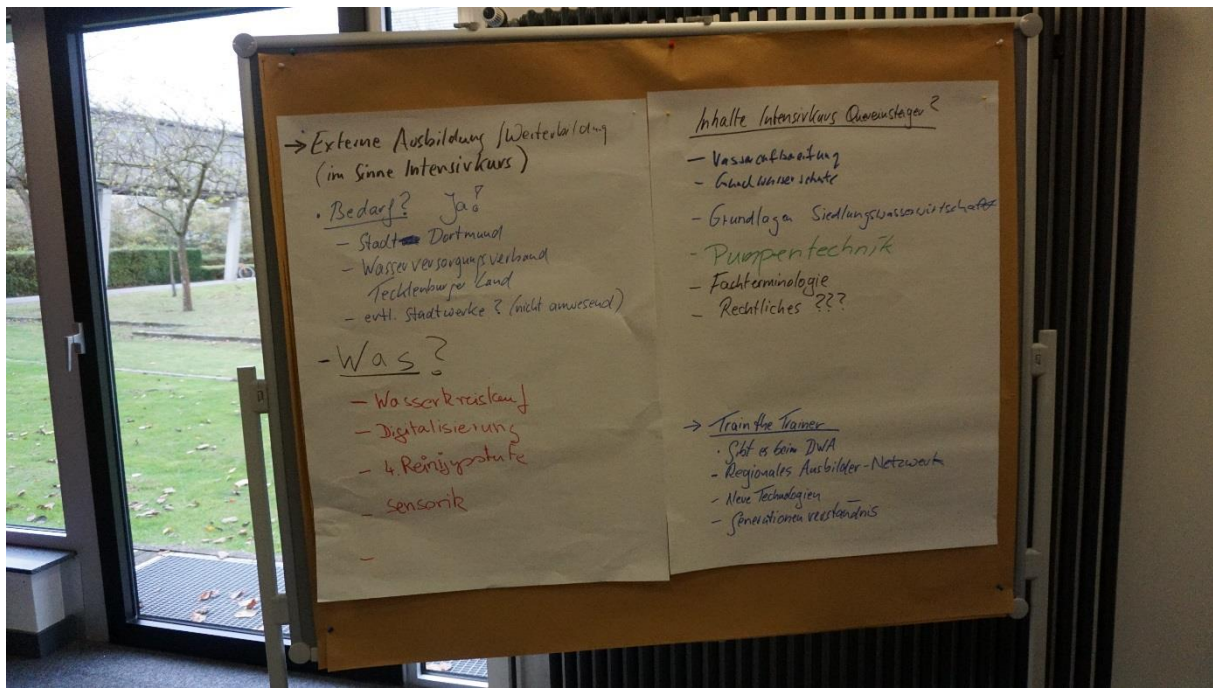 → Externe Ausbildung / Weiterbildung
(im Sinne Intensivkurs)
• Bedarf? Ja!
– Stadt Dortmund
– Wasserversorgungsverband
Tecklenburger Land
– evtl. Stadtwerke? (nicht anwesend)
– Was?
– Wasserkreislauf
– Digitalisierung
– 4. Reinigungsstufe
– Sensorik
–
Inhalte Intensivkurs Quereinsteiger?
– Wasseraufbereitung
–
– Grundlagen Siedlungswasserwirtschaft
– Pumpentechnik
– Fachterminologie
– Rechtliches ???
→ Train the Trainer
· Gibt es beim DWA
– Regionales Ausbilder-Netzwerk
– Neue Technologien
– Generationenverständnis